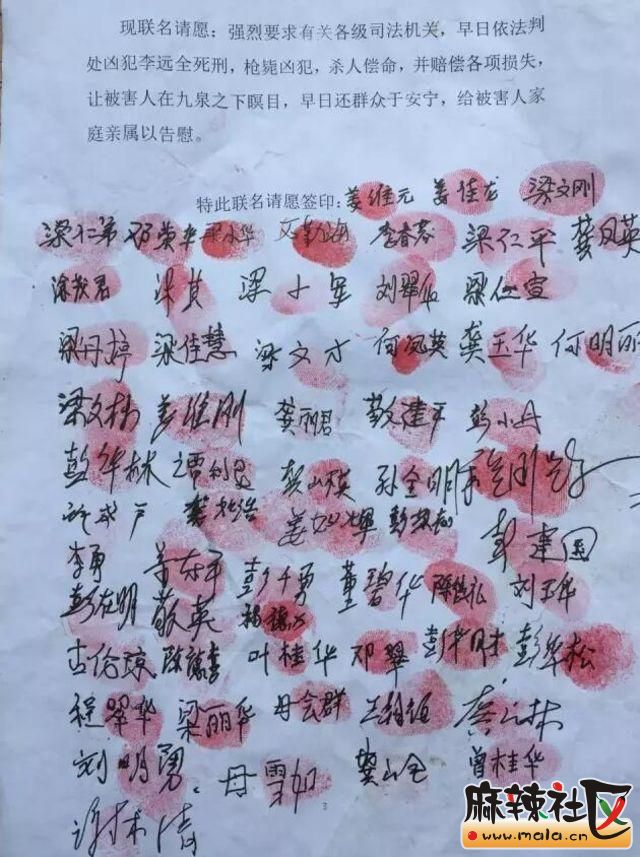 现联名请愿：强烈要求有关各级司法机关，早日依法判
处凶犯李远全死刑，枪毙凶犯，杀人偿命，并赔偿各项损失，
让被害人在九泉之下瞑目，早日还群众于安宁，给被害人家
庭亲属以告慰。
特此联名请愿签印：姜维元 姜佳龙 梁文刚
梁仁弟 邓荣华 梁小华 李春蓉 梁仁平 龚凤英
刘翠华 梁仁宣
梁丹婷 梁佳慧 梁文才 何凤英 龚玉华 何明丽
梁文栋 姜维刚 龚丽君 敬建平 彭小丹
彭华林 孙全明
彭建国
李勇 彭千勇 董碧华 刘玉华
彭在明 敬英
古伦琼 叶桂华 邓翠 彭华松
程翠华 梁丽华 母会群
刘明勇 母雪如 龚山全 曾桂华
麻辣社区
www.mala.cn